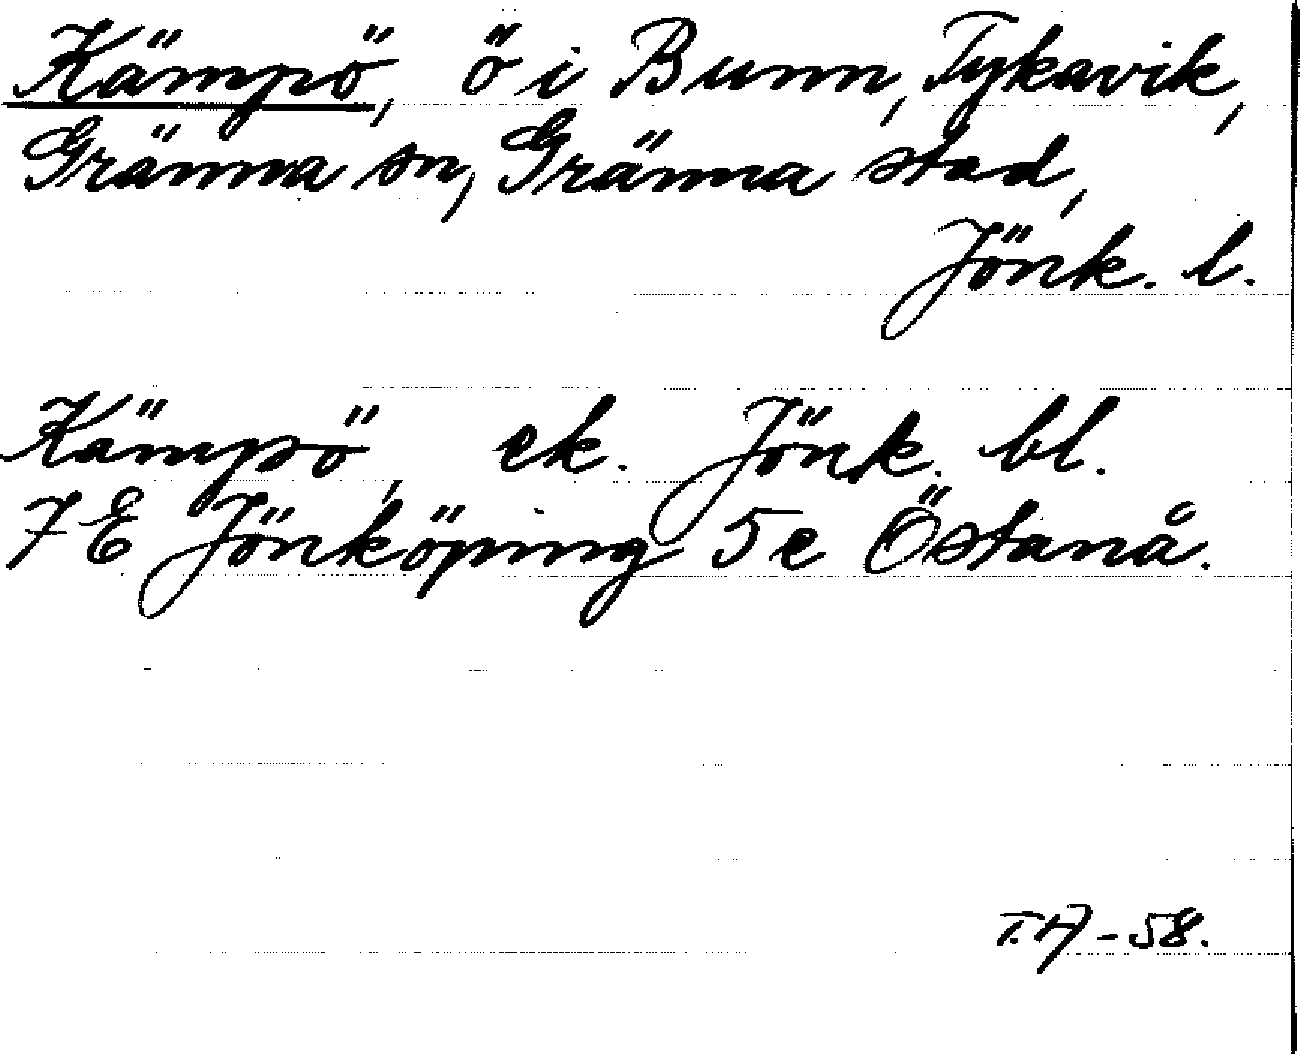 Kämpö, ö i Bunn, Tykavik,
Gränna sn, Gränna stad,
Jönk. l.
Kämpö, ek. Jönk. bl.
7E Jönköping 5e Östanå.
-58.